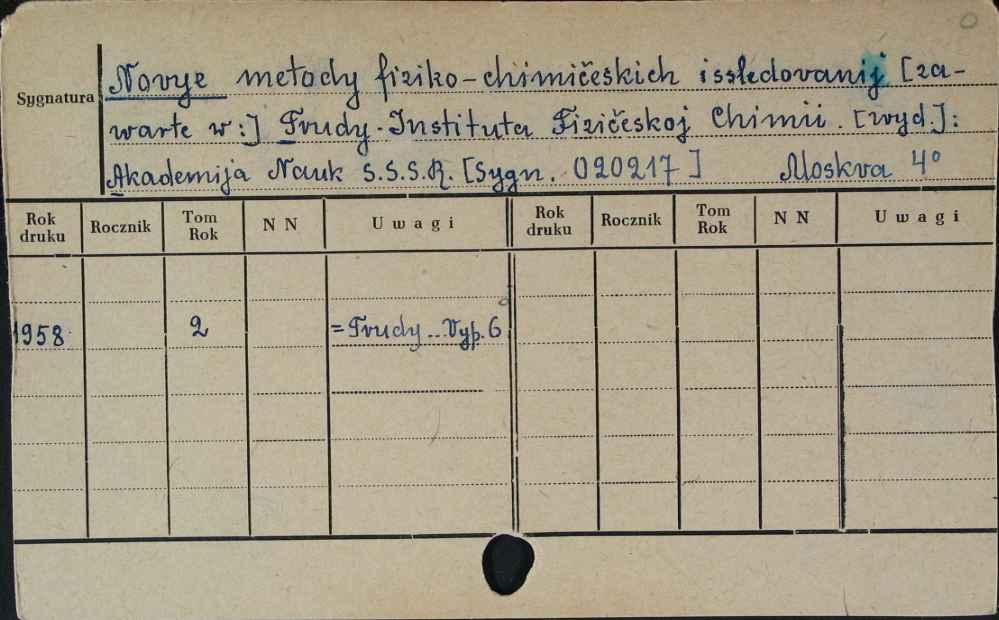 Sygnatura
Novye metody fiziko-chimičeskich issledovanij [za-
warte w:] Trudy Instituta Fizičeskoj Chimii. [wyd.]:
Akademija Nauk S.S.S.R. [Sygn. 020217] Moskva 4°
Rok druku Rocznik Tom Rok NN Uwagi Rok druku Rocznik Tom Rok NN Uwagi
1958 2 =Trudy...Vyp. 6